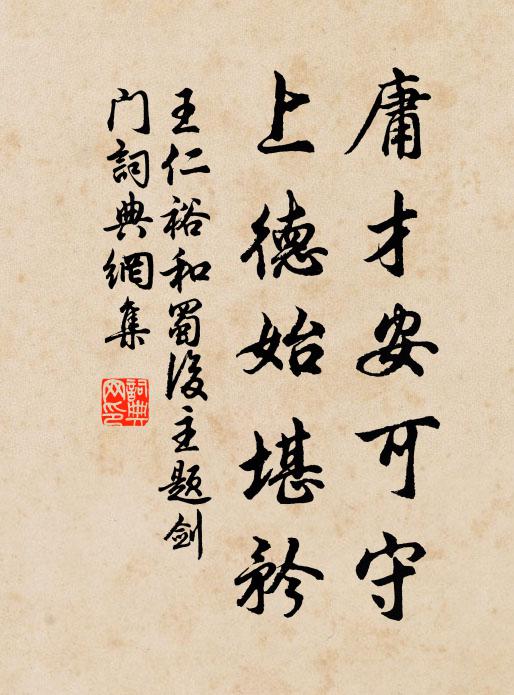 庸才安可守
上德始堪矜
王仁裕和蜀後主题剑
门詞典網集
詞典网印